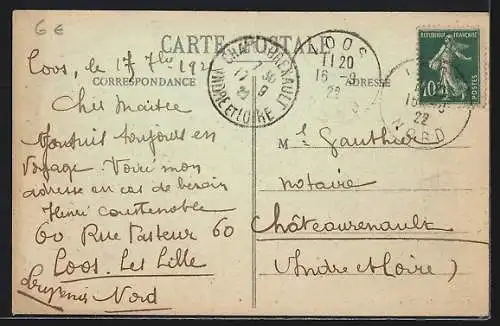 6 €
CARTE POSTALE
CORRESPONDANCE
ADRESSE
LOOS
11 20
16 - 9
22
CHATEAURENAULT
INDRE ET LOIRE
9
22
NORD
REPUBLIQUE FRANÇAISE
10c
POSTES
Loos, le 17 7bre 192
Cher Maître
toujours en
voyage. Voici mon
adresse en cas de besoin
Henri Courtenoble
60 Rue Pasteur 60
Loos-Les Lille
Nord
M Gauthier
notaire
Châteaurenault
(Indre et Loire)